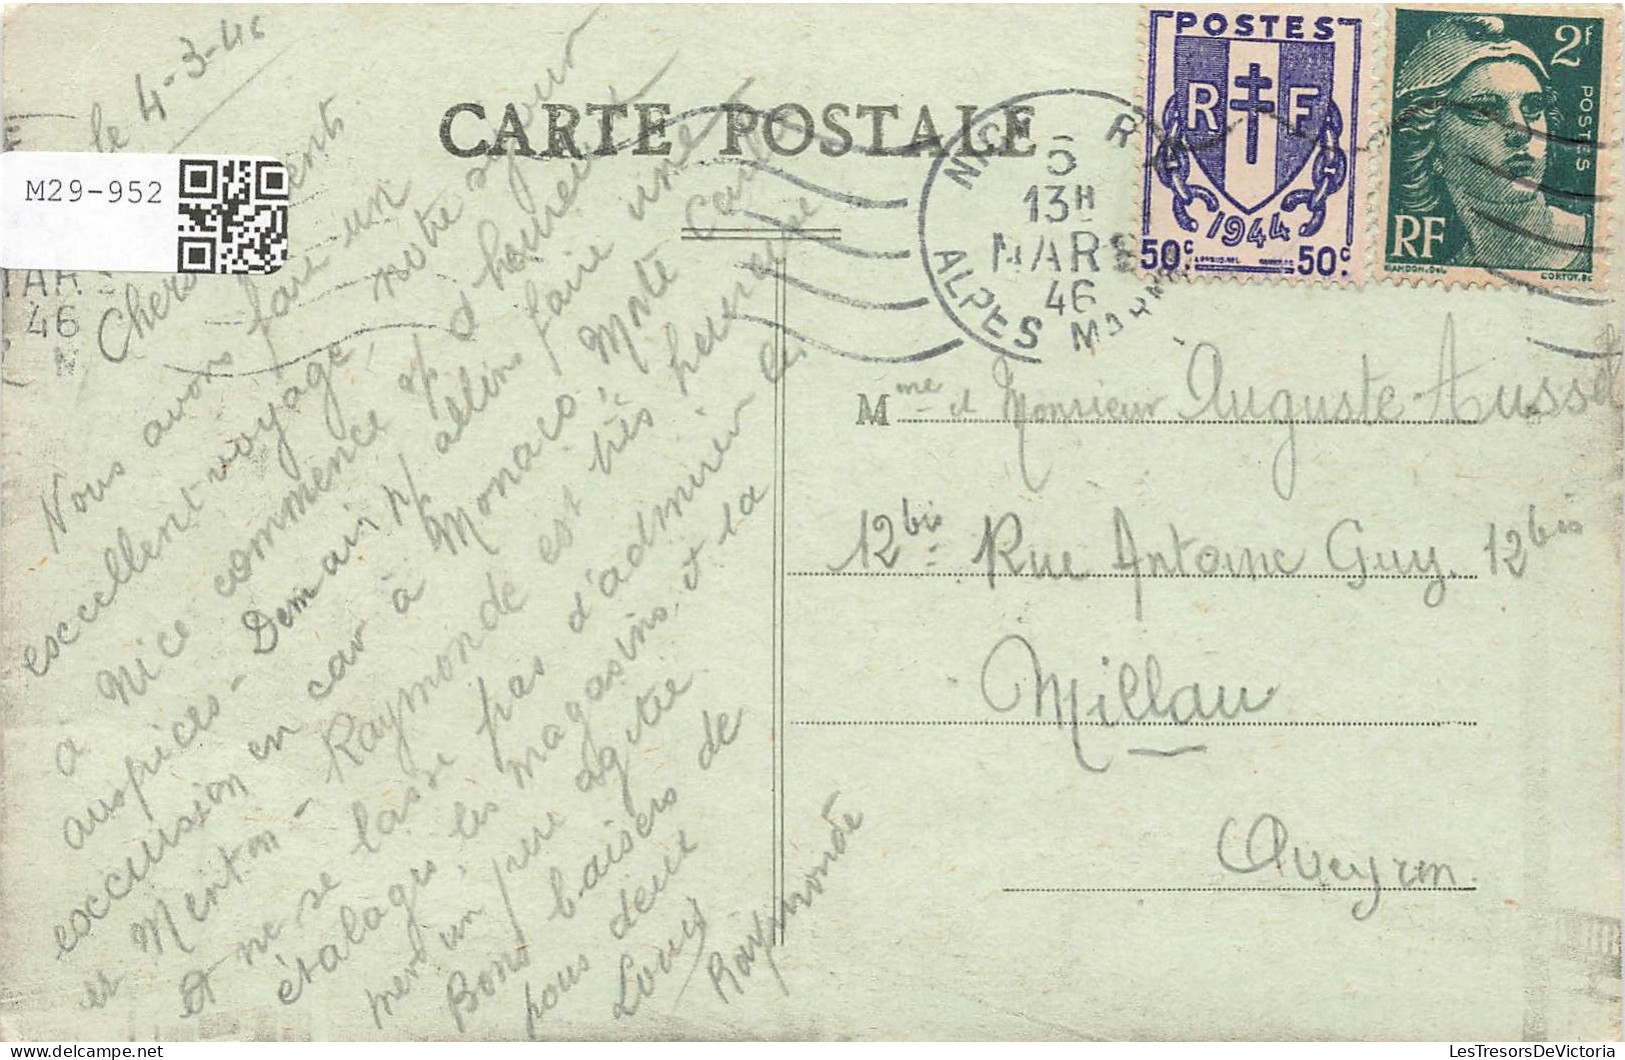 le 4-3-46
M29-952
Chers
Nous avons fait un
excellent voyage, notre séjour
à Nice commence sous d'heureux
auspices - Demain nous allons faire une
excursion en car à Monaco, Monte Carlo
et Menton - Raymonde est très heureuse
et ne se lasse pas d'admirer les
étalages, les magasins et la
mer un peu agitée
Bons baisers de
nous deux
Louis
Raymonde
CARTE POSTALE
NICE
5
13H
MARS
46
ALPES MARIT
MARS
46
POSTES
RF
1944
50c 50c
2f
POSTES
RF
GANDON.DEL.
CORTOT.SC
Mme et Monsieur Auguste Aussel
12bis Rue Antoine Guy. 12bis
Millau
Aveyron.
© LesTresorsDeVictoria
LesTresorsDeVictoria